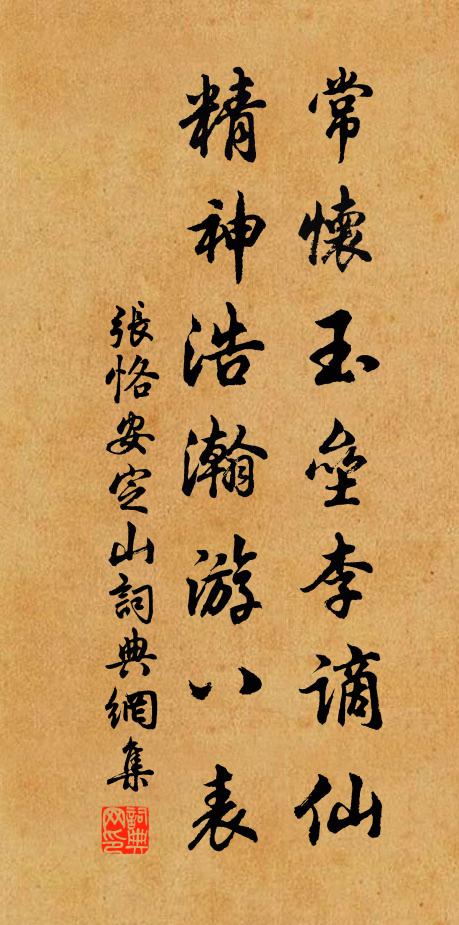 常懷玉壘李謫仙
精神浩瀚游八表
張恪安定山詞典網集
詞典网印